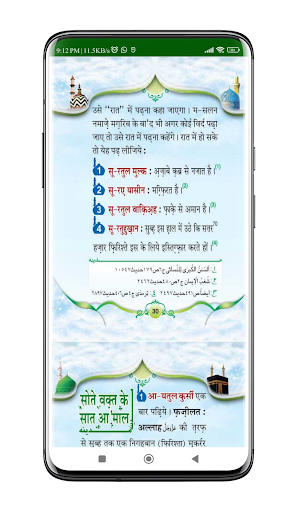 9:12 PM | 11.5KB/s
उसे "रात" में पढ़ना कहा जाएगा। म-सलन
नमाज़े मग़रिब के बा'द भी अगर कोई विर्द पढ़ा
जाए तो उसे रात में पढ़ना कहेंगे। रात में हो सके
तो येह पढ़ लीजिये :
1 सू-रतुल मुल्क : अ़ज़ाबे क़ब्र से नजात है।(1)
2 सू-रए यासीन : मग़्फ़िरत है।(2)
3 सू-रतुल वाक़िअ़ह : फ़ाक़े से अमान है।(3)
4 सू-रतुद्दुख़ान : सुब्ह इस हाल में उठे कि सतर 70
हज़ार फ़िरिश्ते इस के लिये इस्तिग़्फ़ार करते हों।(4)
30
सोते वक़्त के
सात आ'माल
1 आ-यतुल कुर्सी एक
बार पढ़िये। फ़ज़ीलत :
अल्लाह عزوجل की त़रफ़
से सुब्ह तक एक निगहबान (फ़िरिश्ता) मुक़र्रर